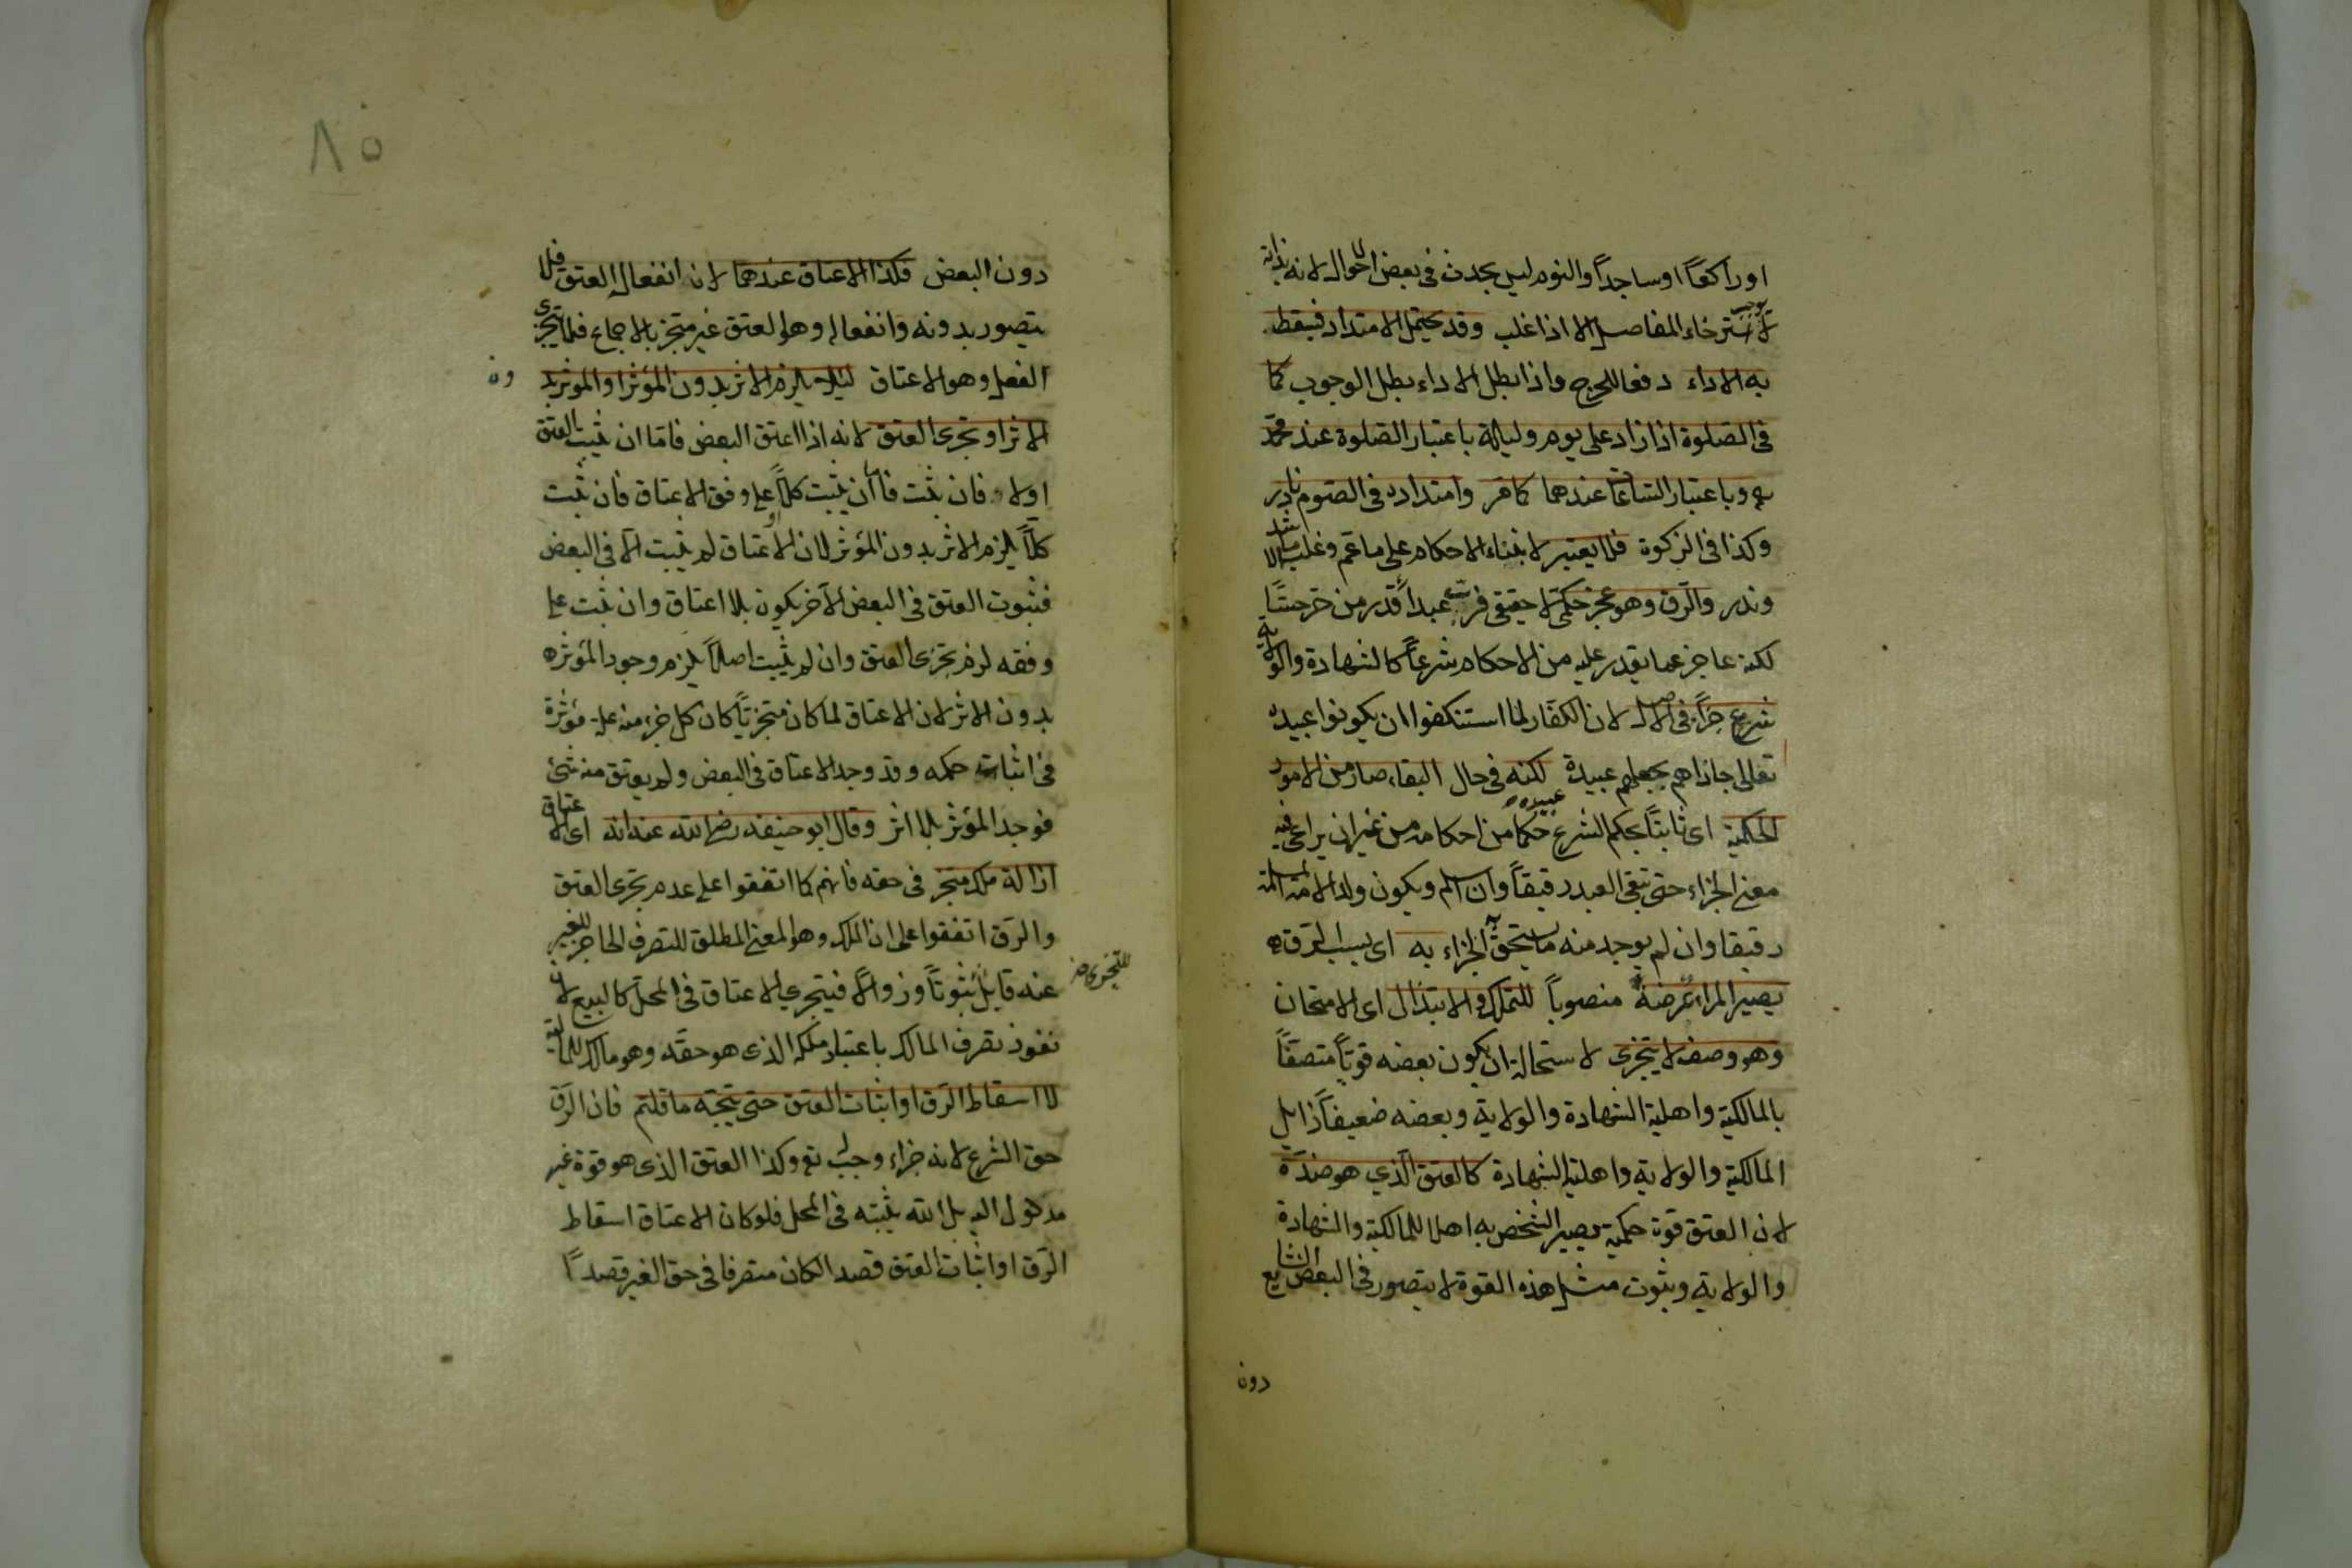 او راكعاً او ساجداً والنوم ليس بحدث فى بعض الاحوال لانه بذاته
لا يوجب استرخاء المفاصل الا اذا غلب وقد يحتمل الامتداد فيسقط
به الاداء دفعا للحرج واذا بطل الاداء بطل الوجوب كما
فى الصلوة اذا زاد على يوم وليلة باعتبار الصلوة عند محمد
وباعتبار الساعات عندهما كما مر وامتداده فى الصوم نادر
وكذا فى الزكوة فلا يعتبر لابتناء الاحكام على ما عم وغلب لا ما شذ
وندر والرق وهو عجز حكمى لا حقيقى فرب عبد اقدر من حر حسّاً
لكنه عاجز عما يقدر عليه من الاحكام شرعاً كالشهادة والولاية
شرع جزاءً فى الاصل لان الكفار لما استنكفوا ان يكونوا عبيده
تعالى جازاهم بجعلهم عبيد عبيده لكنه فى حال البقاء صار من الامور
الحكمية اى ثابتاً بحكم الشرع حكما من احكامه من غير ان يراعى فيه
معنى الجزاء حتى تبقى العبد رقيقاً وان اسلم ويكون ولد الامة المسلمة
رقيقا وان لم يوجد منه ما يستحق به الجزاء به اى بسبب الرق
يصير المرء عرضة منصوباً للتملك والابتذال اى الامتحان
وهو وصف لا يتجزى لاستحالة ان يكون بعضه قوياً متصفاً
بالمالكية واهلية الشهادة والولاية وبعضه ضعيفاً زايل
المالكية والولاية واهلية الشهادة كالعتق الذي هو ضدّه
لان العتق قوة حكمية يصير الشخص به اهلا للمالكية والشهادة
والولاية وثبوت مثل هذه القوة لا يتصور فى البعض الشايع
دون
٨٥
دون البعض فكذا الاعتاق عندهما لانه انفعال العتق فلا
يتصور بدونه وانفعاله وهو العتق غير متجز بالاجماع فلا يتجزى
الفعل وهو الاعتاق لئلا يلزم الاثر بدون المؤثر او المؤثر بدون
الاثر او تجزى العتق لانه اذا اعتق البعض فاما ان يثبت العتق
او لا فان ثبت فاما ان يثبت كلاً او على وفق الاعتاق فان ثبت
كلاً يلزم الاثر بدون المؤثر لان الاعتاق لم يثبت الا فى البعض
فثبوت العتق فى البعض الآخر يكون بلا اعتاق وان ثبت على
وفقه لزم تجزى العتق وان لم يثبت اصلاً يلزم وجود المؤثر
بدون الاثر لان الاعتاق لما كان متجزياً كان كل جزء منه علة مؤثرة
فى اثبات حكمه وقد وجد الاعتاق فى البعض ولم يعتق منه شئ
فوجد المؤثر بلا اثر وقال ابو حنيفه رضى الله عنه انه اى الاعتاق
ازالة ملك متجز فى حقه فانهم كما اتفقوا على عدم تجزى العتق
والرق اتفقوا على ان الملك وهو المعنى المطلق للتصرف الحاجز للغير
عنه قابل للتجزى ثبوتاً وزوالاً فيتجزى الاعتاق فى المحل كالبيع لان
نفوذ تصرف المالك باعتبار ملكه الذى هو حقه وهو مالك للمالية
لا اسقاط الرق او اثبات العتق حتى يتجه ما قلتم فان الرق
حق الشرع لانه جزاء وجب لله تع وكذا العتق الذى هو قوة غير
مدخول اليه بل الله يثبته فى المحل فلو كان الاعتاق اسقاط
الرق او اثبات العتق قصدا لكان متصرفا فى حق الغير قصداً